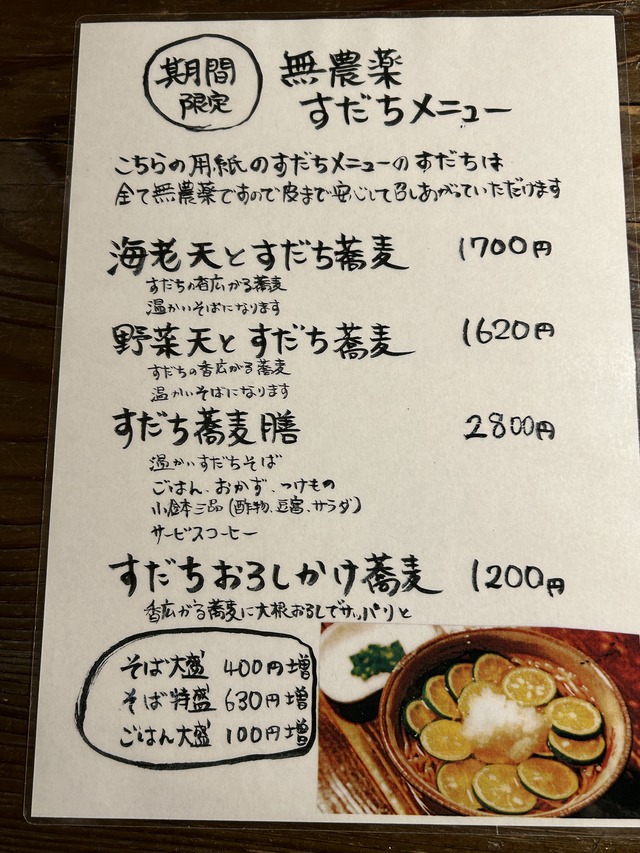 期間
限定
無農薬
すだちメニュー
こちらの用紙のすだちメニューのすだちは
全て無農薬ですので皮まで安心して召しあがっていただけます
海老天とすだち蕎麦 1700円
すだちの香広がる蕎麦
温かいそばになります
野菜天とすだち蕎麦 1620円
すだちの香広がる蕎麦
温かいそばになります
すだち蕎麦膳 2800円
温かいすだちそば
ごはん、おかず、つけもの
小鉢三品(酢物、豆富、サラダ)
サービスコーヒー
すだちおろしかけ蕎麦 1200円
香広がる蕎麦に大根おろしでサッパリと
そば大盛 400円増
そば特盛 630円増
ごはん大盛 100円増